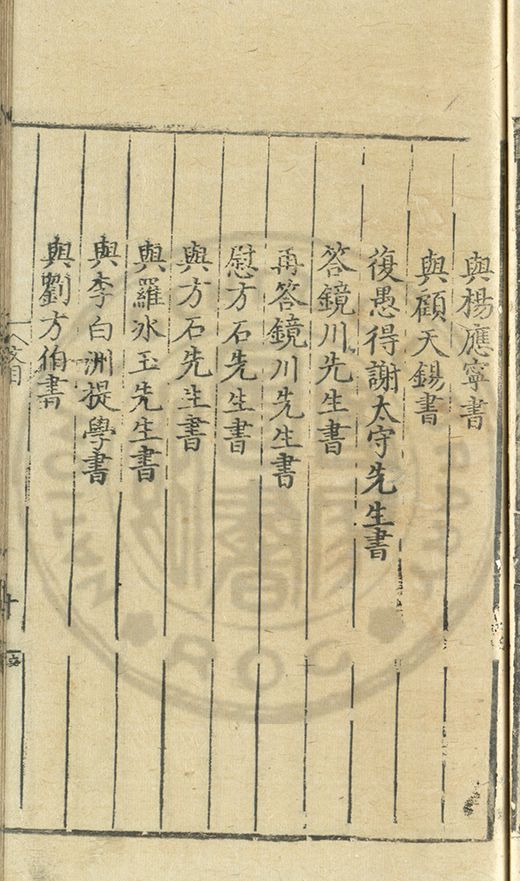 與楊應寧書
與顧天錫書
復愚得謝太守先生書
答鏡川先生書
再答鏡川先生書
慰方石先生書
與方石先生書
與羅冰玉先生書
與李白洲提學書
與劉方伯書